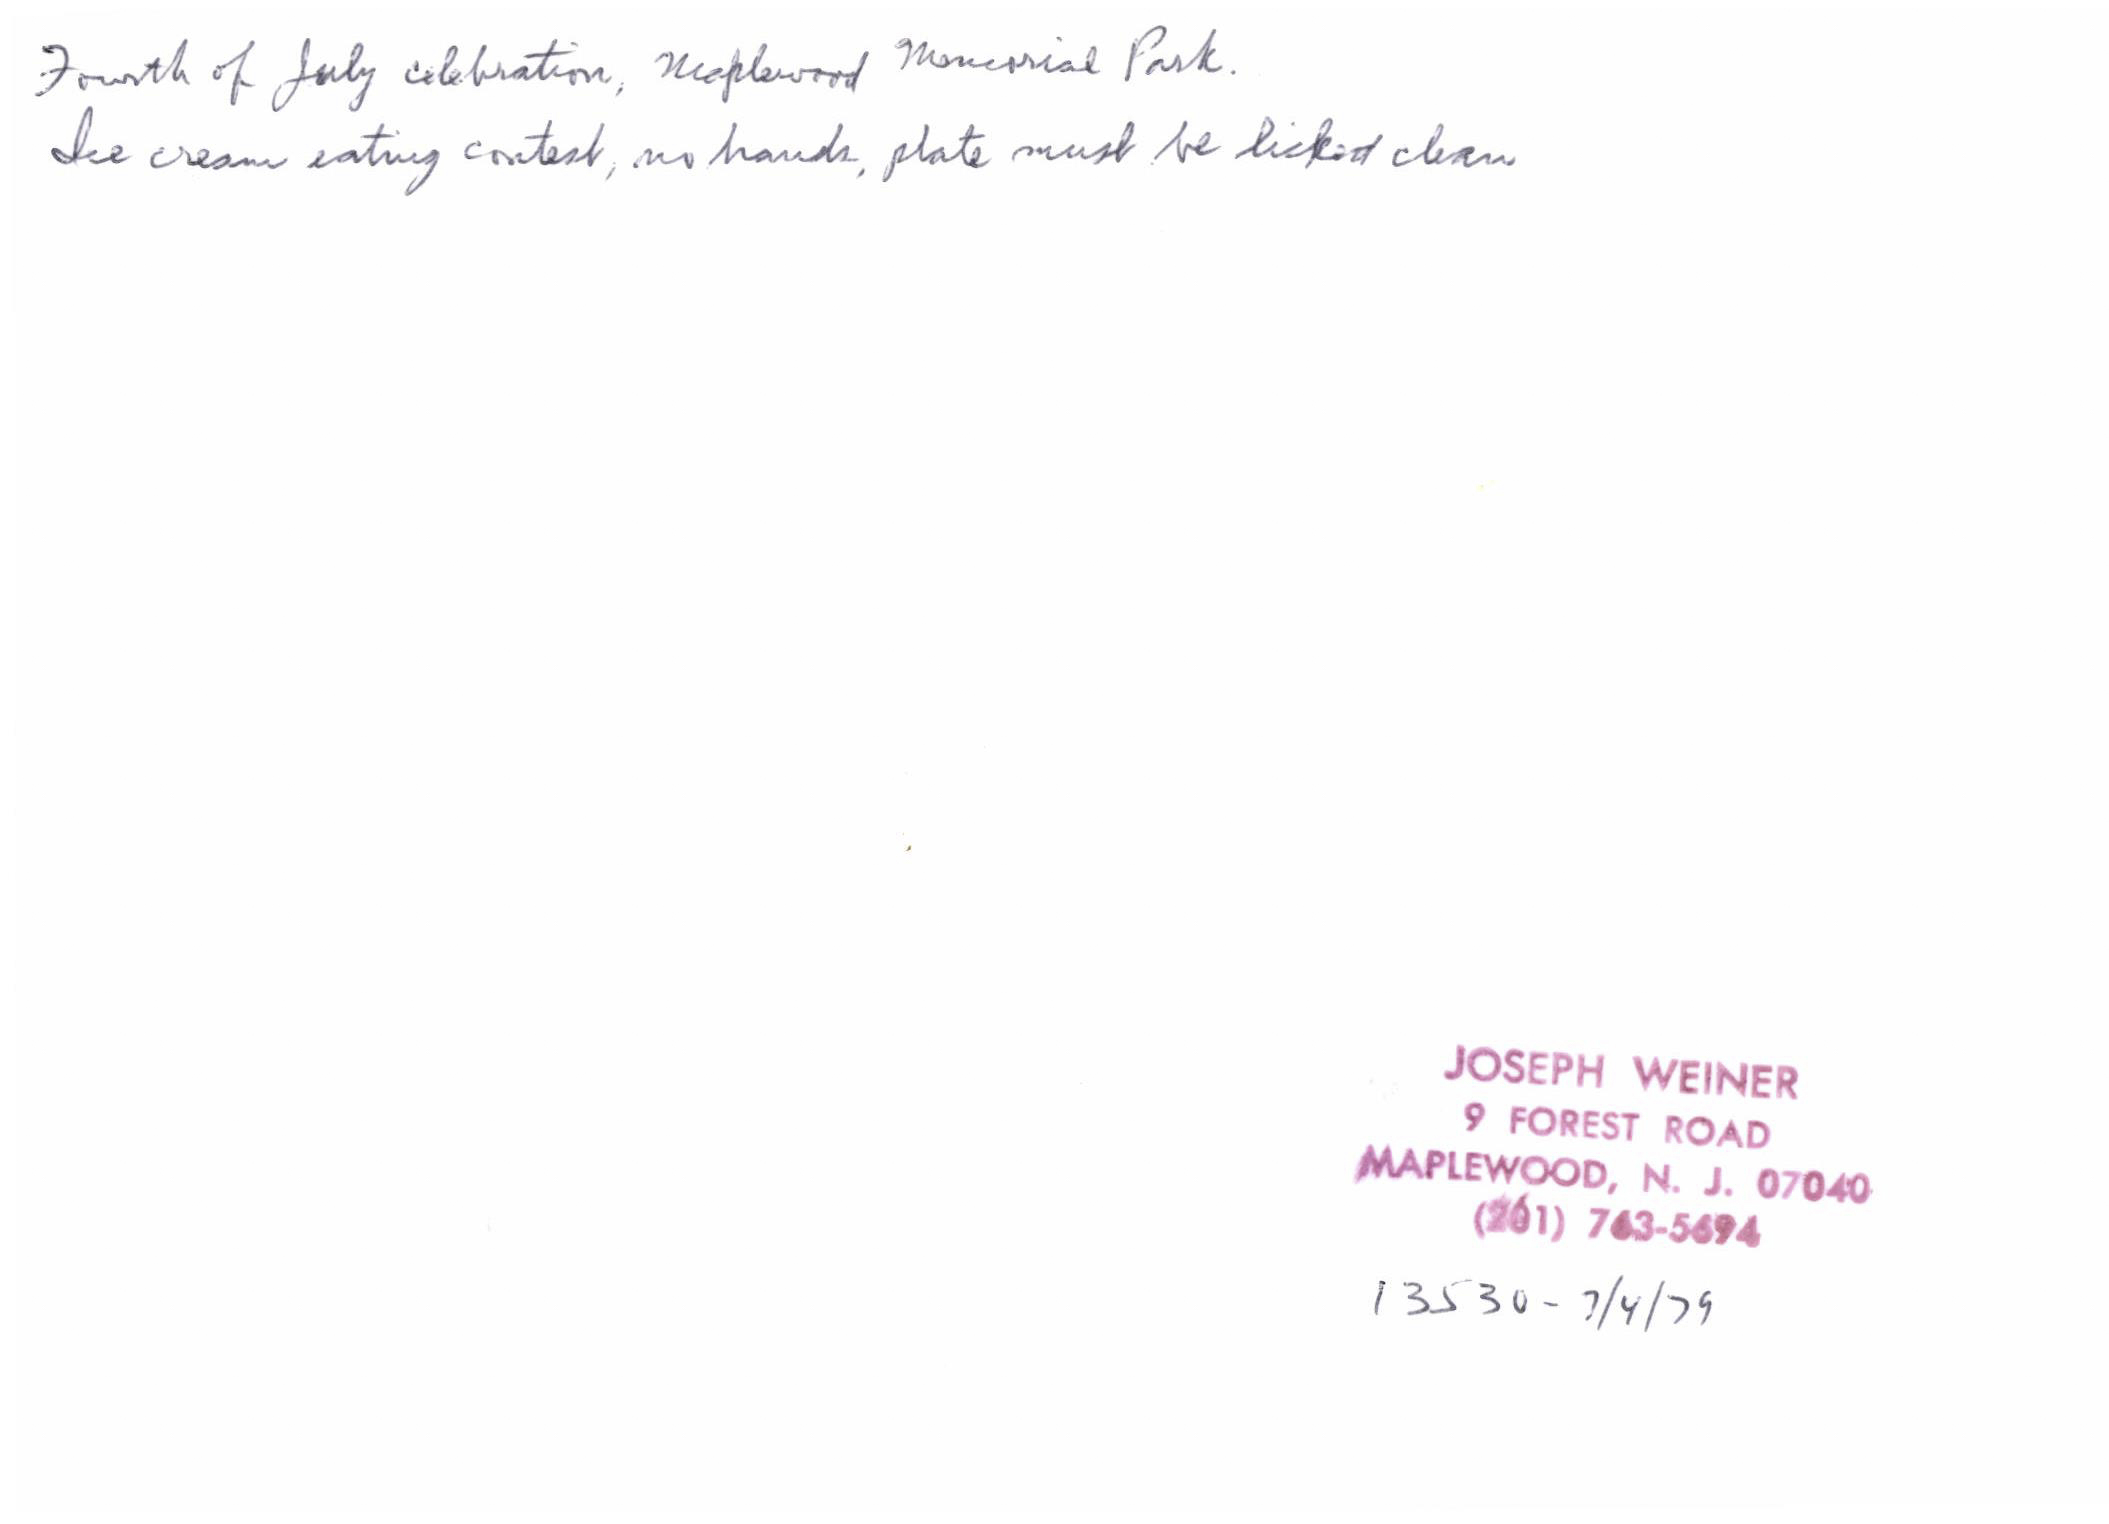 Fourth of July celebration, Maplewood Memorial Park.
Ice cream eating contest, no hands, plate must be licked clean
JOSEPH WEINER
9 FOREST ROAD
MAPLEWOOD, N. J. 07040
(201) 763-5694
13530 - 7/4/79